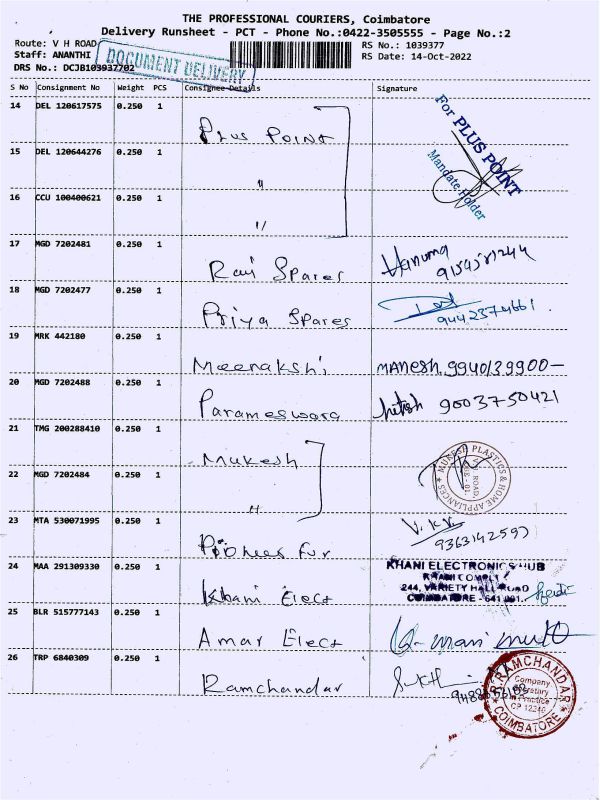 THE PROFESSIONAL COURIERS, Coimbatore
Delivery Runsheet - PCT - Phone No.:0422-3505555 - Page No.:2
Route: V H ROAD
RS No.: 1039377
Staff: ANANTHI
RS Date: 14-Oct-2022
DRS No.: DCJB103937702
DOCUMENT DELIVERY
S No Consignment No Weight PCS Consignee Details Signature
14 DEL 120617575 0.250 1 Plus Point
For PLUS POINT
Mandate Holder
15 DEL 120644276 0.250 1 "
16 CCU 100400621 0.250 1 "
17 MGD 7202481 0.250 1 Ravi Spares Hanuma
18 MGD 7202477 0.250 1 Priya Spares
9442374661
19 MRK 442180 0.250 1 Meenakshi MANESH 9940139900
20 MGD 7202488 0.250 1 Parameswara hitesh 9003750421
21 TMG 200288410 0.250 1 Mukesh
MUKESH PLASTICS & HOME APPLIANCES
22 MGD 7202484 0.250 1 "
23 MTA 530071995 0.250 1 Pioneer Fur V.KV
9363142597
24 MAA 291309330 0.250 1 Khani Elect
KHANI ELECTRONICS HUB
KHANI COMPLEX
244, VARIETY HALL ROAD
COIMBATORE - 641 001.
25 BLR 515777143 0.250 1 Amar Elect
26 TRP 6840309 0.250 1 Ramchandar
RAMCHANDAR
Company
Secretary
in Practice
CP 12240
COIMBATORE